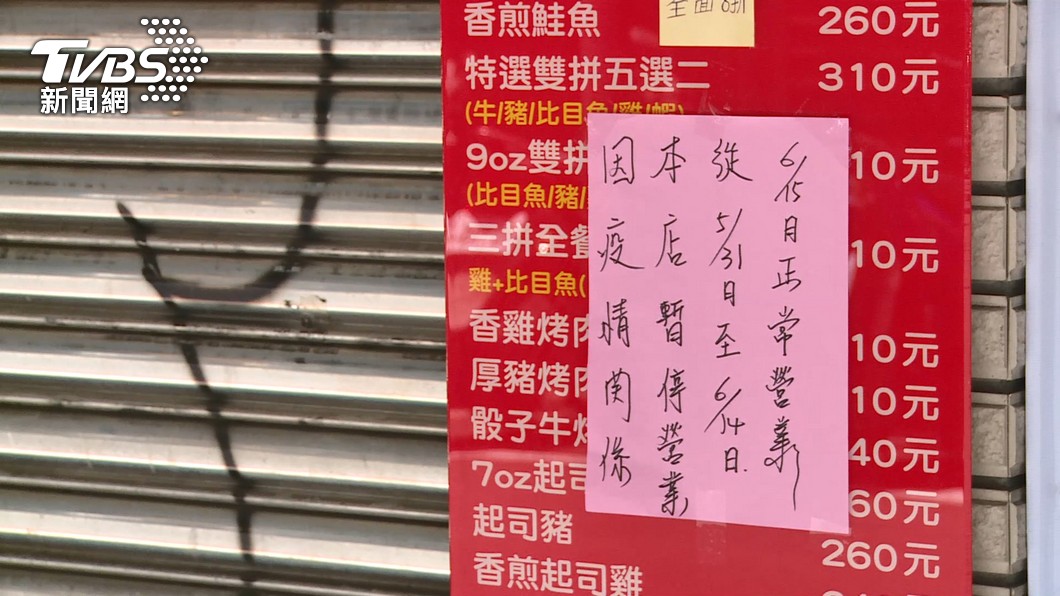 TVBS
新聞網
全面8折
香煎鮭魚 260元
特選雙拼五選二 310元
(牛/豬/比目魚/雞/蝦)
9oz雙拼 10元
(比目魚/豬/
三拼全餐 10元
雞+比目魚(
香雞烤肉 10元
厚豬烤肉 10元
骰子牛 40元
7oz起司 60元
起司豬 260元
香煎起司雞
因疫情関係
本店暫停營業
從5/31日至6/14日.
6/15日正常營業